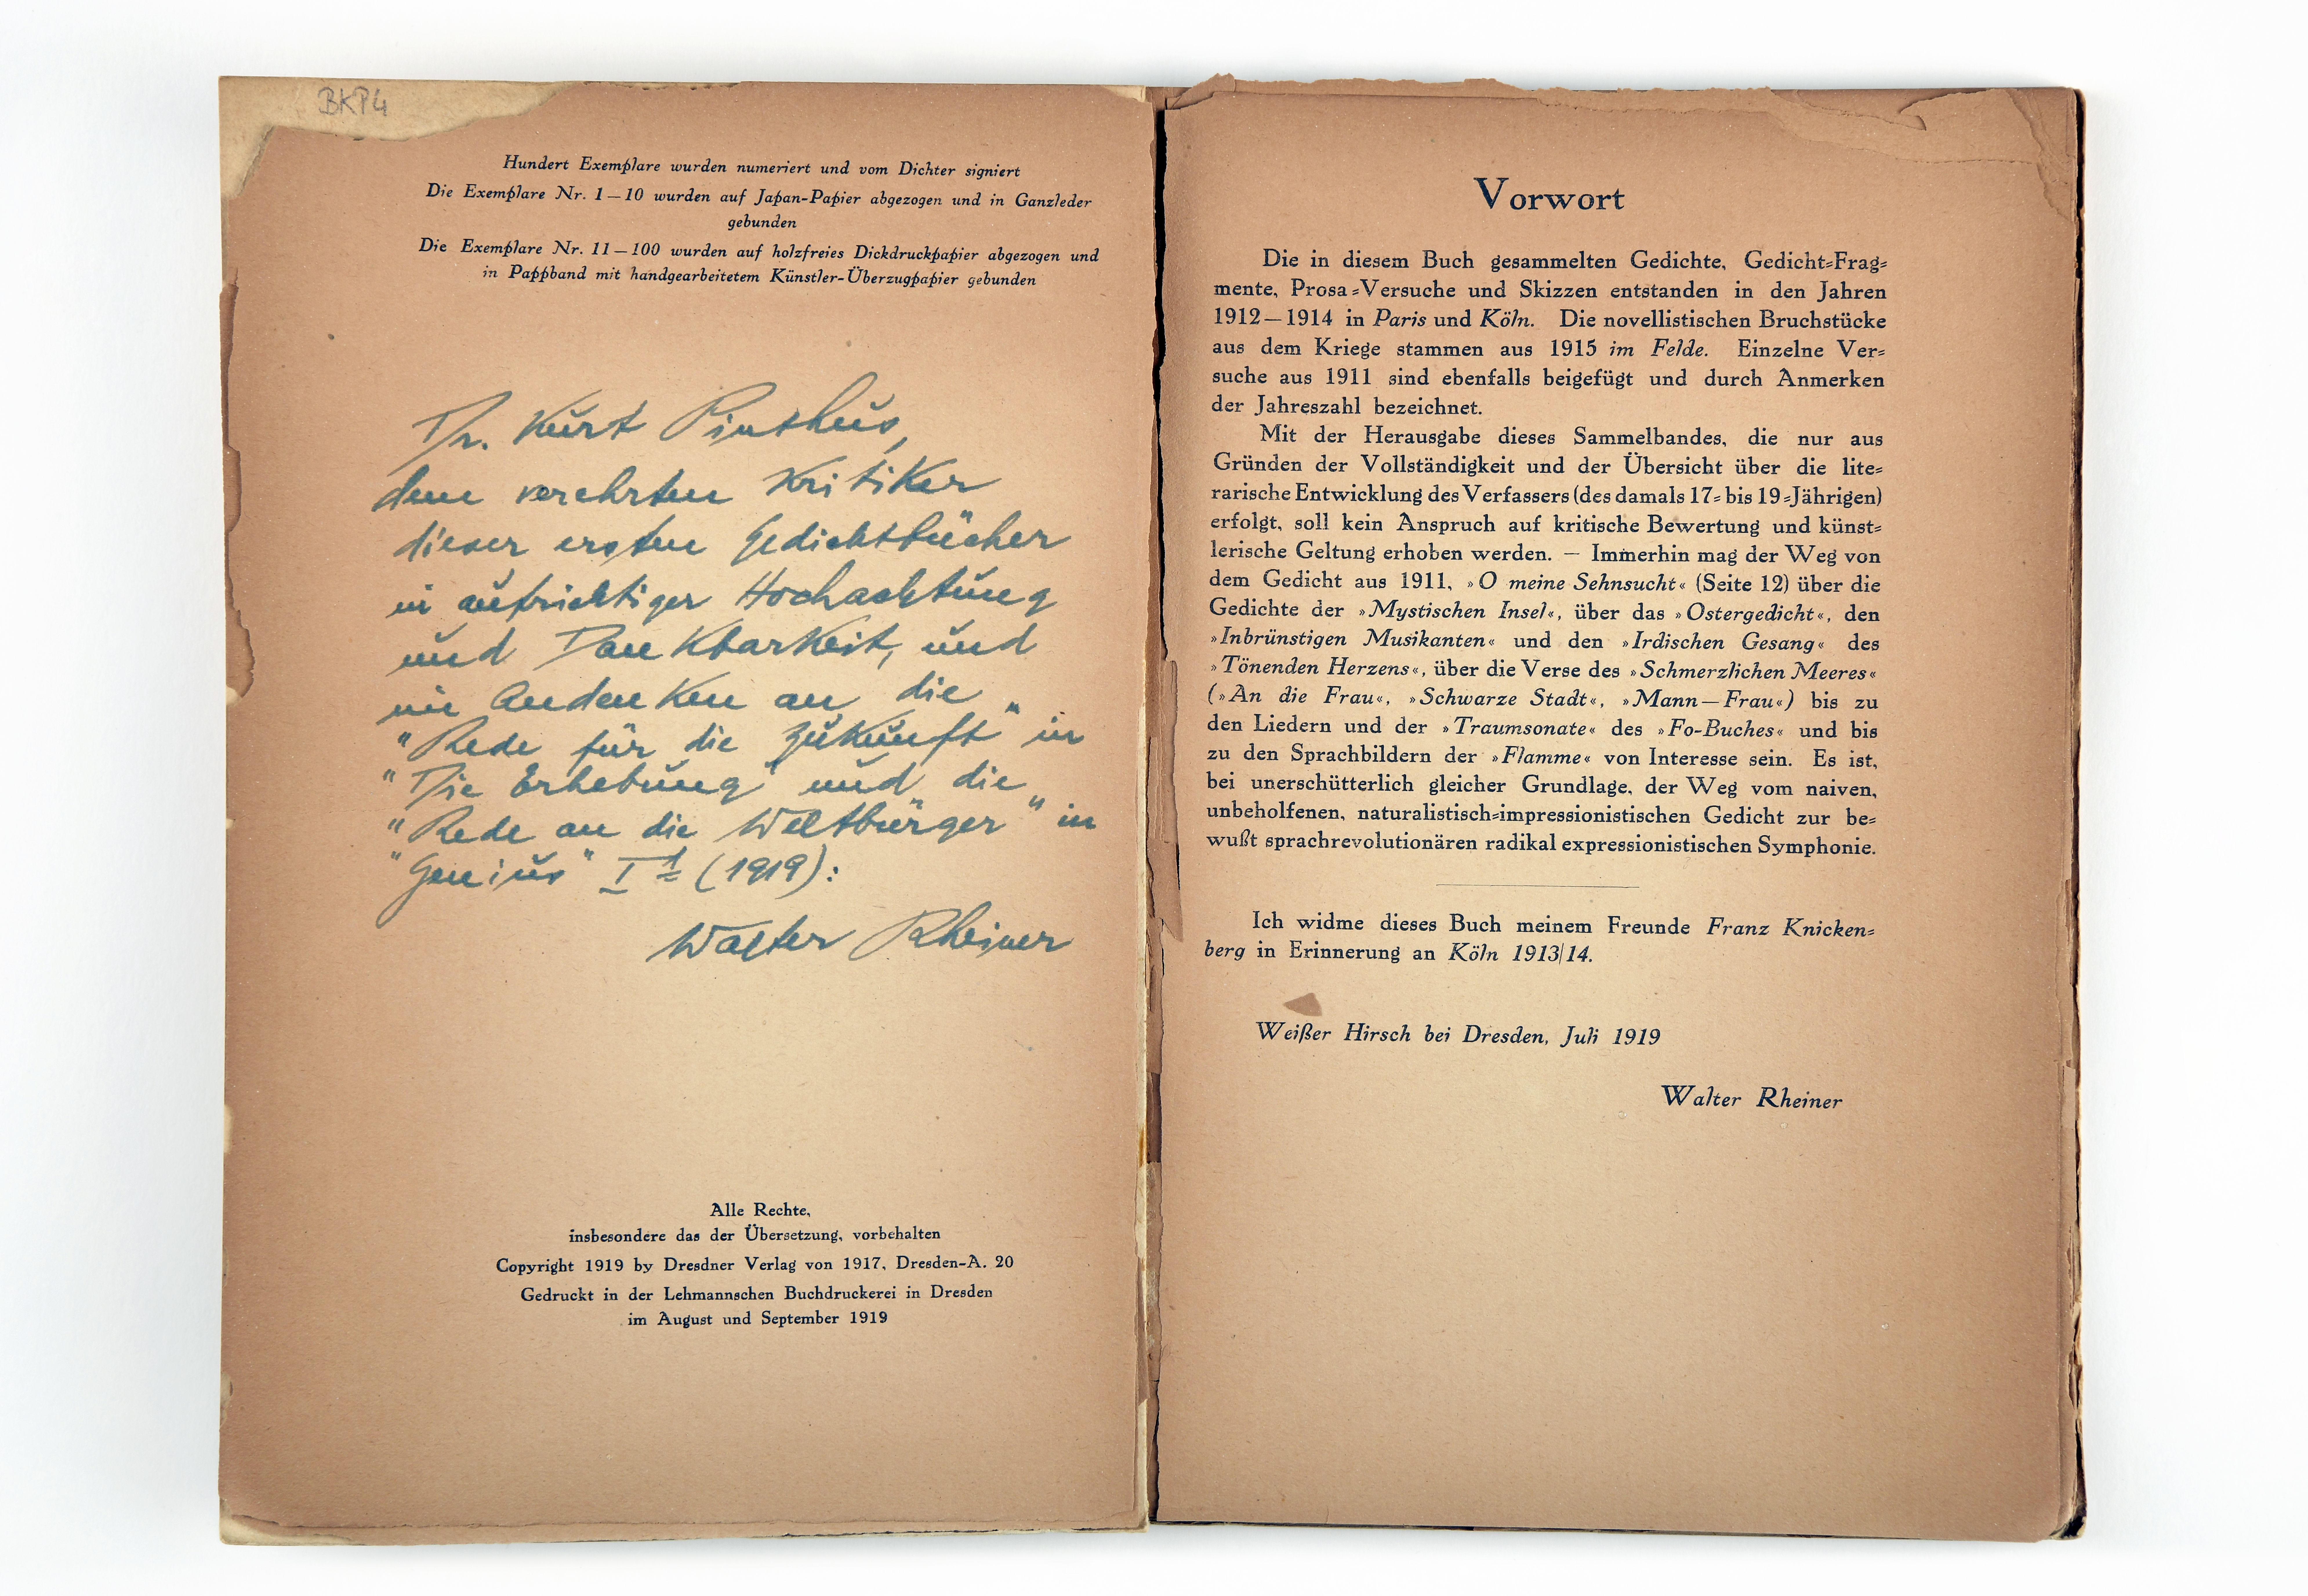 BKP4
Hundert Exemplare wurden numeriert und vom Dichter signiert
Die Exemplare Nr. 1—10 wurden auf Japan-Papier abgezogen und in Ganzleder
gebunden
Die Exemplare Nr. 11—100 wurden auf holzfreies Dickdruckpapier abgezogen und
in Pappband mit handgearbeitetem Künstler-Überzugpapier gebunden
Dr. Kurt Pinthus,
dem verehrten Kritiker
dieser ersten Gedichtbücher
in aufrichtiger Hochachtung
und Dankbarkeit, und
im Andenken an die
"Rede für die Zukunft" in
"Die Erhebung" und die
"Rede an die Weltbürger" in
"Genius" I 1 (1919):
Walter Rheiner
Alle Rechte,
insbesondere das der Übersetzung, vorbehalten
Copyright 1919 by Dresdner Verlag von 1917, Dresden-A. 20
Gedruckt in der Lehmannschen Buchdruckerei in Dresden
im August und September 1919
Vorwort
Die in diesem Buch gesammelten Gedichte, Gedicht=Frag=
mente, Prosa=Versuche und Skizzen entstanden in den Jahren
1912—1914 in Paris und Köln. Die novellistischen Bruchstücke
aus dem Kriege stammen aus 1915 im Felde. Einzelne Ver=
suche aus 1911 sind ebenfalls beigefügt und durch Anmerken
der Jahreszahl bezeichnet.
Mit der Herausgabe dieses Sammelbandes, die nur aus
Gründen der Vollständigkeit und der Übersicht über die lite=
rarische Entwicklung des Verfassers (des damals 17= bis 19=Jährigen)
erfolgt, soll kein Anspruch auf kritische Bewertung und künst=
lerische Geltung erhoben werden. — Immerhin mag der Weg von
dem Gedicht aus 1911, »O meine Sehnsucht« (Seite 12) über die
Gedichte der »Mystischen Insel«, über das »Ostergedicht«, den
»Inbrünstigen Musikanten« und den »Irdischen Gesang« des
»Tönenden Herzens«, über die Verse des »Schmerzlichen Meeres«
(»An die Frau«, »Schwarze Stadt«, »Mann—Frau«) bis zu
den Liedern und der »Traumsonate« des »Fo-Buches« und bis
zu den Sprachbildern der »Flamme« von Interesse sein. Es ist,
bei unerschütterlich gleicher Grundlage, der Weg vom naiven,
unbeholfenen, naturalistisch=impressionistischen Gedicht zur be=
wußt sprachrevolutionären radikal expressionistischen Symphonie.
Ich widme dieses Buch meinem Freunde Franz Knicken=
berg in Erinnerung an Köln 1913|14.
Weißer Hirsch bei Dresden, Juli 1919
Walter Rheiner